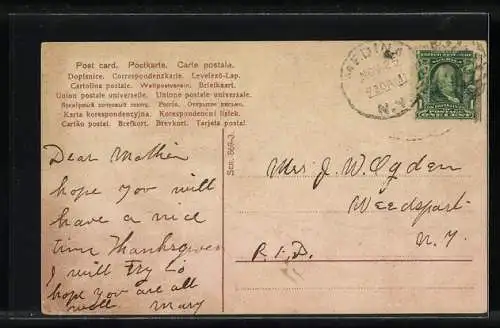 Post card. Postkarte. Carte postale.
Dopisnice. Correspondenzkarte. Levelező-Lap.
Cartolina postale. Weltpostverein. Briefkaart.
Union postale universelle. Unione postale universale.
Karta korespondencyjna. Korespondenční lístek.
Cartão postal. Brefkort. Brevkort. Tarjeta postal.
MEDINA
N.Y.
Ser. 869-3.
Dear Mother
hope you will
have a nice
time Thanksgiven
I will try to
hope you are all
well Mary
Mrs J. W. Ogden
Weedsport
N.Y.
R.F.D.